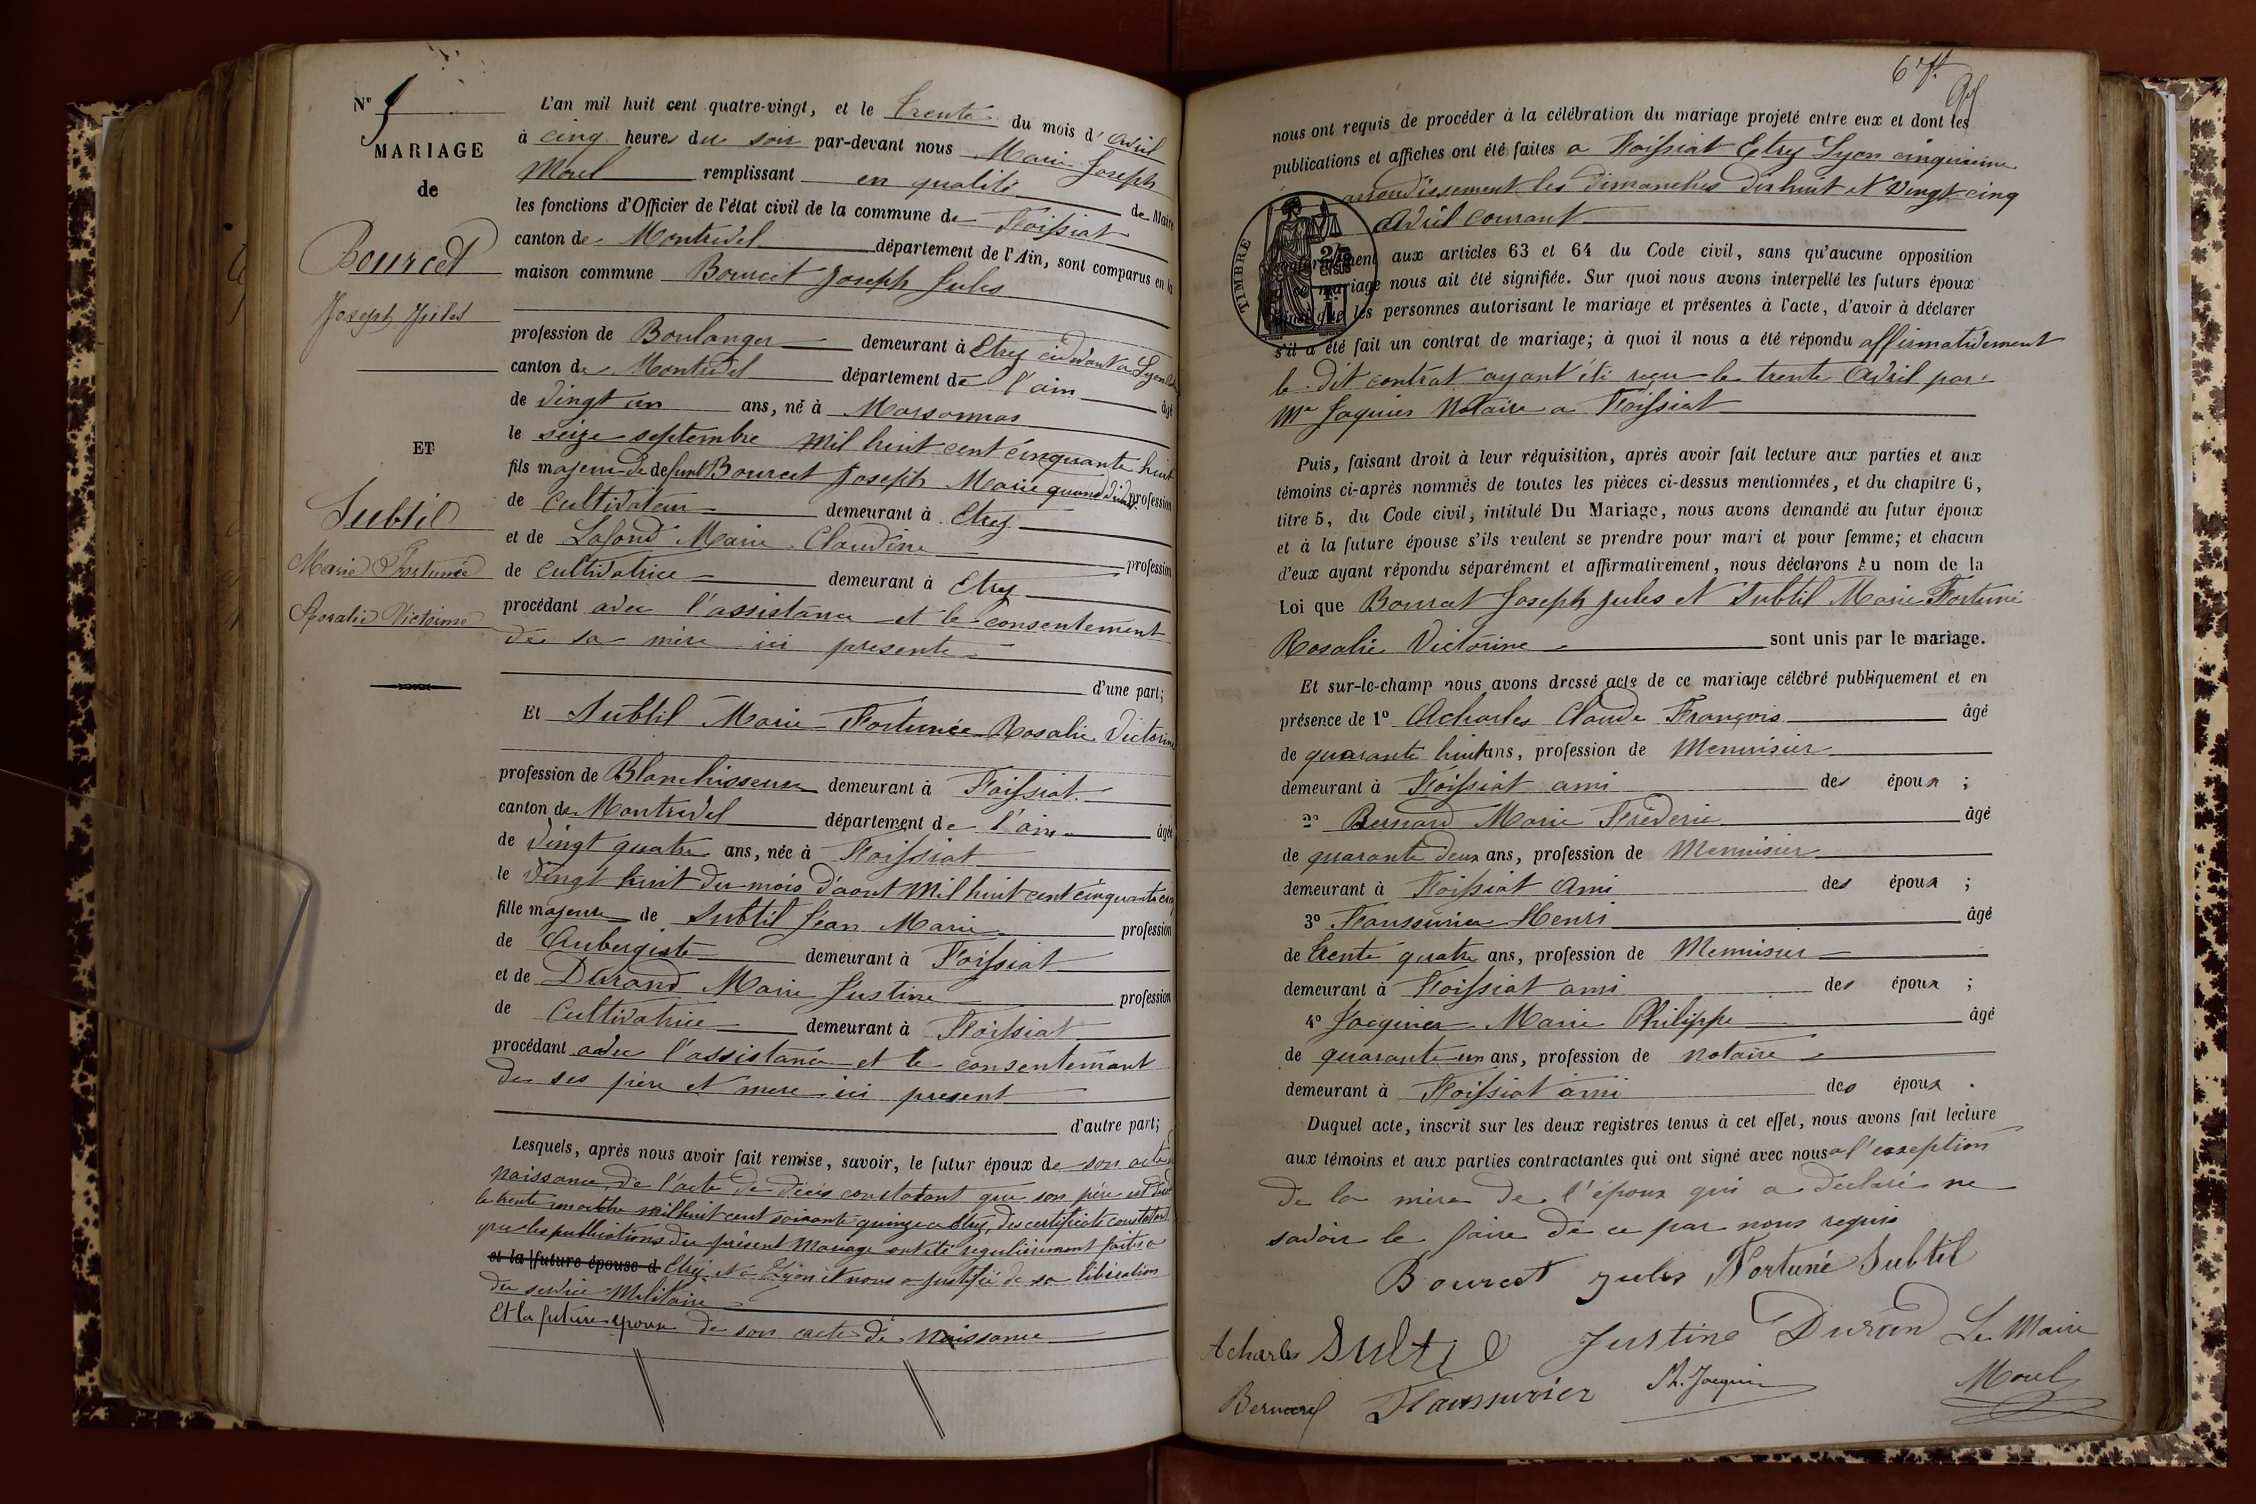 N° 5
MARIAGE
de
Bourcet
Joseph Jules
ET
Subtil
Marie Fortunée
Rosalie Victorine
L'an mil huit cent quatre-vingt, et le trente du mois d'avril
à cinq heures du soir par-devant nous Marie Joseph
Morel remplissant en qualité de Maire
les fonctions d'Officier de l'état civil de la commune de Foissiat
canton de Montrevel département de l'Ain, sont comparus en la
maison commune Bourcet Joseph Jules
profession de Boulanger demeurant à Etrez cidevant a Lyon
canton de Montrevel département de l'ain âgé
de vingt un ans, né à Marsonnas
le seize septembre mil huit cent cinquante huit
fils majeur de defunt Bourcet Joseph Marie quand vivait profession
de cultivateur demeurant à Etrez
et de Lafond Marie Claudine profession
de cultivatrice demeurant à Etrez
procédant avec l'assistance et le consentement
de sa mère ici presente
d'une part;
Et Subtil Marie Fortunée Rosalie Victorine
profession de Blanchisseuse demeurant à Foissiat
canton de Montrevel département de l'ain âgée
de vingt quatre ans, née à Foissiat
le vingt huit du mois d'aout mil huit cent cinquante cinq
fille majeure de Subtil Jean Marie profession
de Aubergiste demeurant à Foissiat
et de Durand Marie Justine profession
de Cultivatrice demeurant à Foissiat
procédant avec l'assistance et le consentement
de ses père et mere ici present
d'autre part;
Lesquels, après nous avoir fait remise, savoir, le futur époux de son acte de
naissance, de l'acte de décès constatant que son père est décédé
le trente un octobre mil huit cent soixante quinze a Etrez, des certificats constatant
que les publications du présent Mariage ont été regulièrement faites a
et la future épouse d Etrez et a Lyon et nous a justifié de sa libération
du service Militaire
Et la future epoux de son acte de naissance
6 7t.
nous ont requis de procéder à la célébration du mariage projeté entre eux et dont les
publications et affiches ont été faites a Foissiat Etrez Lyon cinquieme
arrondissement les dimanches dix huit et vingt cinq
avril courant
TIMBRE
conformément aux articles 63 et 64 du Code civil, sans qu'aucune opposition
à ce mariage nous ait été signifiée. Sur quoi nous avons interpellé les futurs époux
ainsi que les personnes autorisant le mariage et présentes à l'acte, d'avoir à déclarer
s'il a été fait un contrat de mariage; à quoi il nous a été répondu affirmativement
le dit contrat ayant été reçu le trente avril par
Me Jaquier Notaire a Foissiat
Puis, faisant droit à leur réquisition, après avoir fait lecture aux parties et aux
témoins ci-après nommés de toutes les pièces ci-dessus mentionnées, et du chapitre 6,
titre 5, du Code civil, intitulé Du Mariage, nous avons demandé au futur époux
et à la future épouse s'ils veulent se prendre pour mari et pour femme; et chacun
d'eux ayant répondu séparément et affirmativement, nous déclarons Au nom de la
Loi que Bourcet Joseph Jules et Subtil Marie Fortuné
Rosalie Victorine sont unis par le mariage.
Et sur-le-champ nous avons dressé acte de ce mariage célébré publiquement et en
présence de 1° Acharles Claude François âgé
de quarante huit ans, profession de Menuisier
demeurant à Foissiat ami des époux ;
2° Bernard Marie Fréderic âgé
de quarante deux ans, profession de Menuisier
demeurant à Foissiat Ami des époux ;
3° Faussurier Henri âgé
de trente quatre ans, profession de Menuisier
demeurant à Foissiat ami des époux ;
4° Jacquier Marie Philippe âgé
de quarante un ans, profession de notaire
demeurant à Foissiat ami des époux .
Duquel acte, inscrit sur les deux registres tenus à cet effet, nous avons fait lecture
aux témoins et aux parties contractantes qui ont signé avec nous a l'exception
de la mère de l'époux qui a déclaré ne
savoir le faire de ce par nous requis
Bourcet Jules Fortuné Subtil
Acharles Subtil Justine Durand Le Maire
Bernard Faussurier Ph. Jacquier Morel